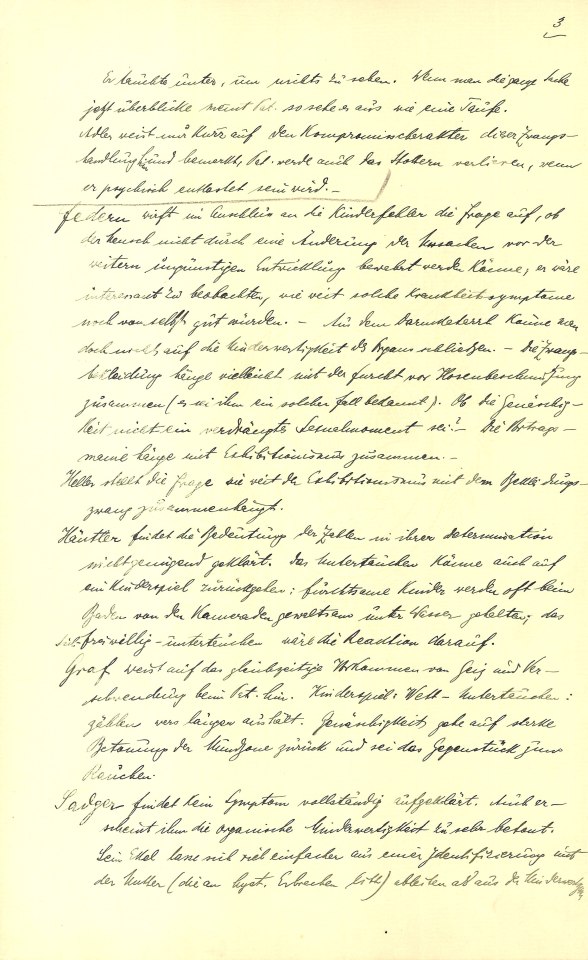 3
Er tauchte unter, um nichts zu sehen. Wenn man die ganze Sache
jetzt überblicke meint Pat. so sehe es aus wie eine Taufe.
Adler weist nur kurz auf den Kompromischarakter dieser Zwangs-
handlung hin und bemerkt, Pat. werde auch das Stottern verlieren, wenn
er psychisch entlastet sein wird. –
Federn wirft im Anschluss an die Kinderfehler die Frage auf, ob
der Mensch nicht durch eine Änderung der Ursachen vor der
weitern ungünstigen Entwicklung bewahrt werden könne; es wäre
interessant zu beobachten, wie weit solche Krankheitssymptome
noch von selbst gut würden. – Aus dem Darmkatarrh könne man
doch noch auf die Minderwertigkeit des Organs schließen. – Die Zwangs-
bekleidung hänge vielleicht mit der Furcht vor Hosenbeschmutzung
zusammen (es sei ihm ein solcher Fall bekannt). Ob die Genäschig-
keit nicht ein verdrängtes Sexualmoment sei? – Die Vortrags-
manie hänge mit Exhibitionismus zusammen. –
Heller stellt die Frage wie weit der Exhibitionismus mit dem Bekleidungs-
zwang zusammenhängt.
Häutler findet die Bedeutung der Zahlen in ihrer Determination
nicht genügend geklärt. Das Untertauchen könne auch auf
ein Kinderspiel zurückgehen: furchtsame Kinder werden oft beim
Baden von den Kameraden gewaltsam unter Wasser gehalten; das
sich-freiwillig-untertauchen wäre die Reaction darauf.
Graf weist auf das gleichzeitige Vorkommen von Geiz und Ver-
schwendung beim Pat. hin. Kinderspiel: Wett-Untertauchen:
zählen wers länger aushält. Genäschigkeit gehe auf starke
Betonung der Mundzone zurück und sei das Gegenstück zum
Rauchen.
Sadger findet kein Symptom vollständig aufgeklärt. Auch er-
scheint ihm die organische Minderwertigkeit zu sehr betont.
Sein Ekel lasse sich viel einfacher aus einer Identifizierung mit
der Mutter (die an hyst. Erbrechen litt) ableiten als aus der